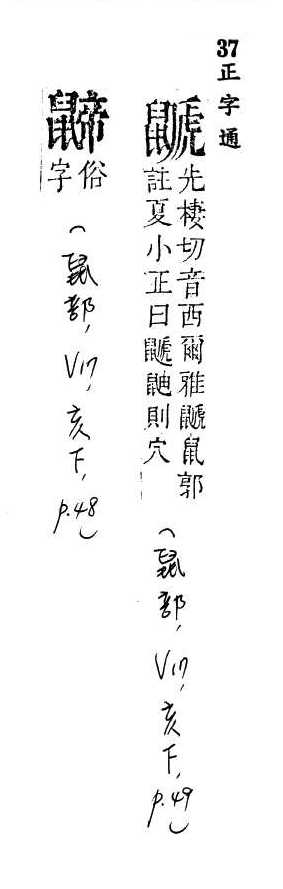 37 正字通
鼶
先棲切音西爾雅鼶鼠郭
註夏小正曰鼶鼬則穴
(鼠部, V17, 亥下, p.49)
俗
字
(鼠部, V17, 亥下, p.48)